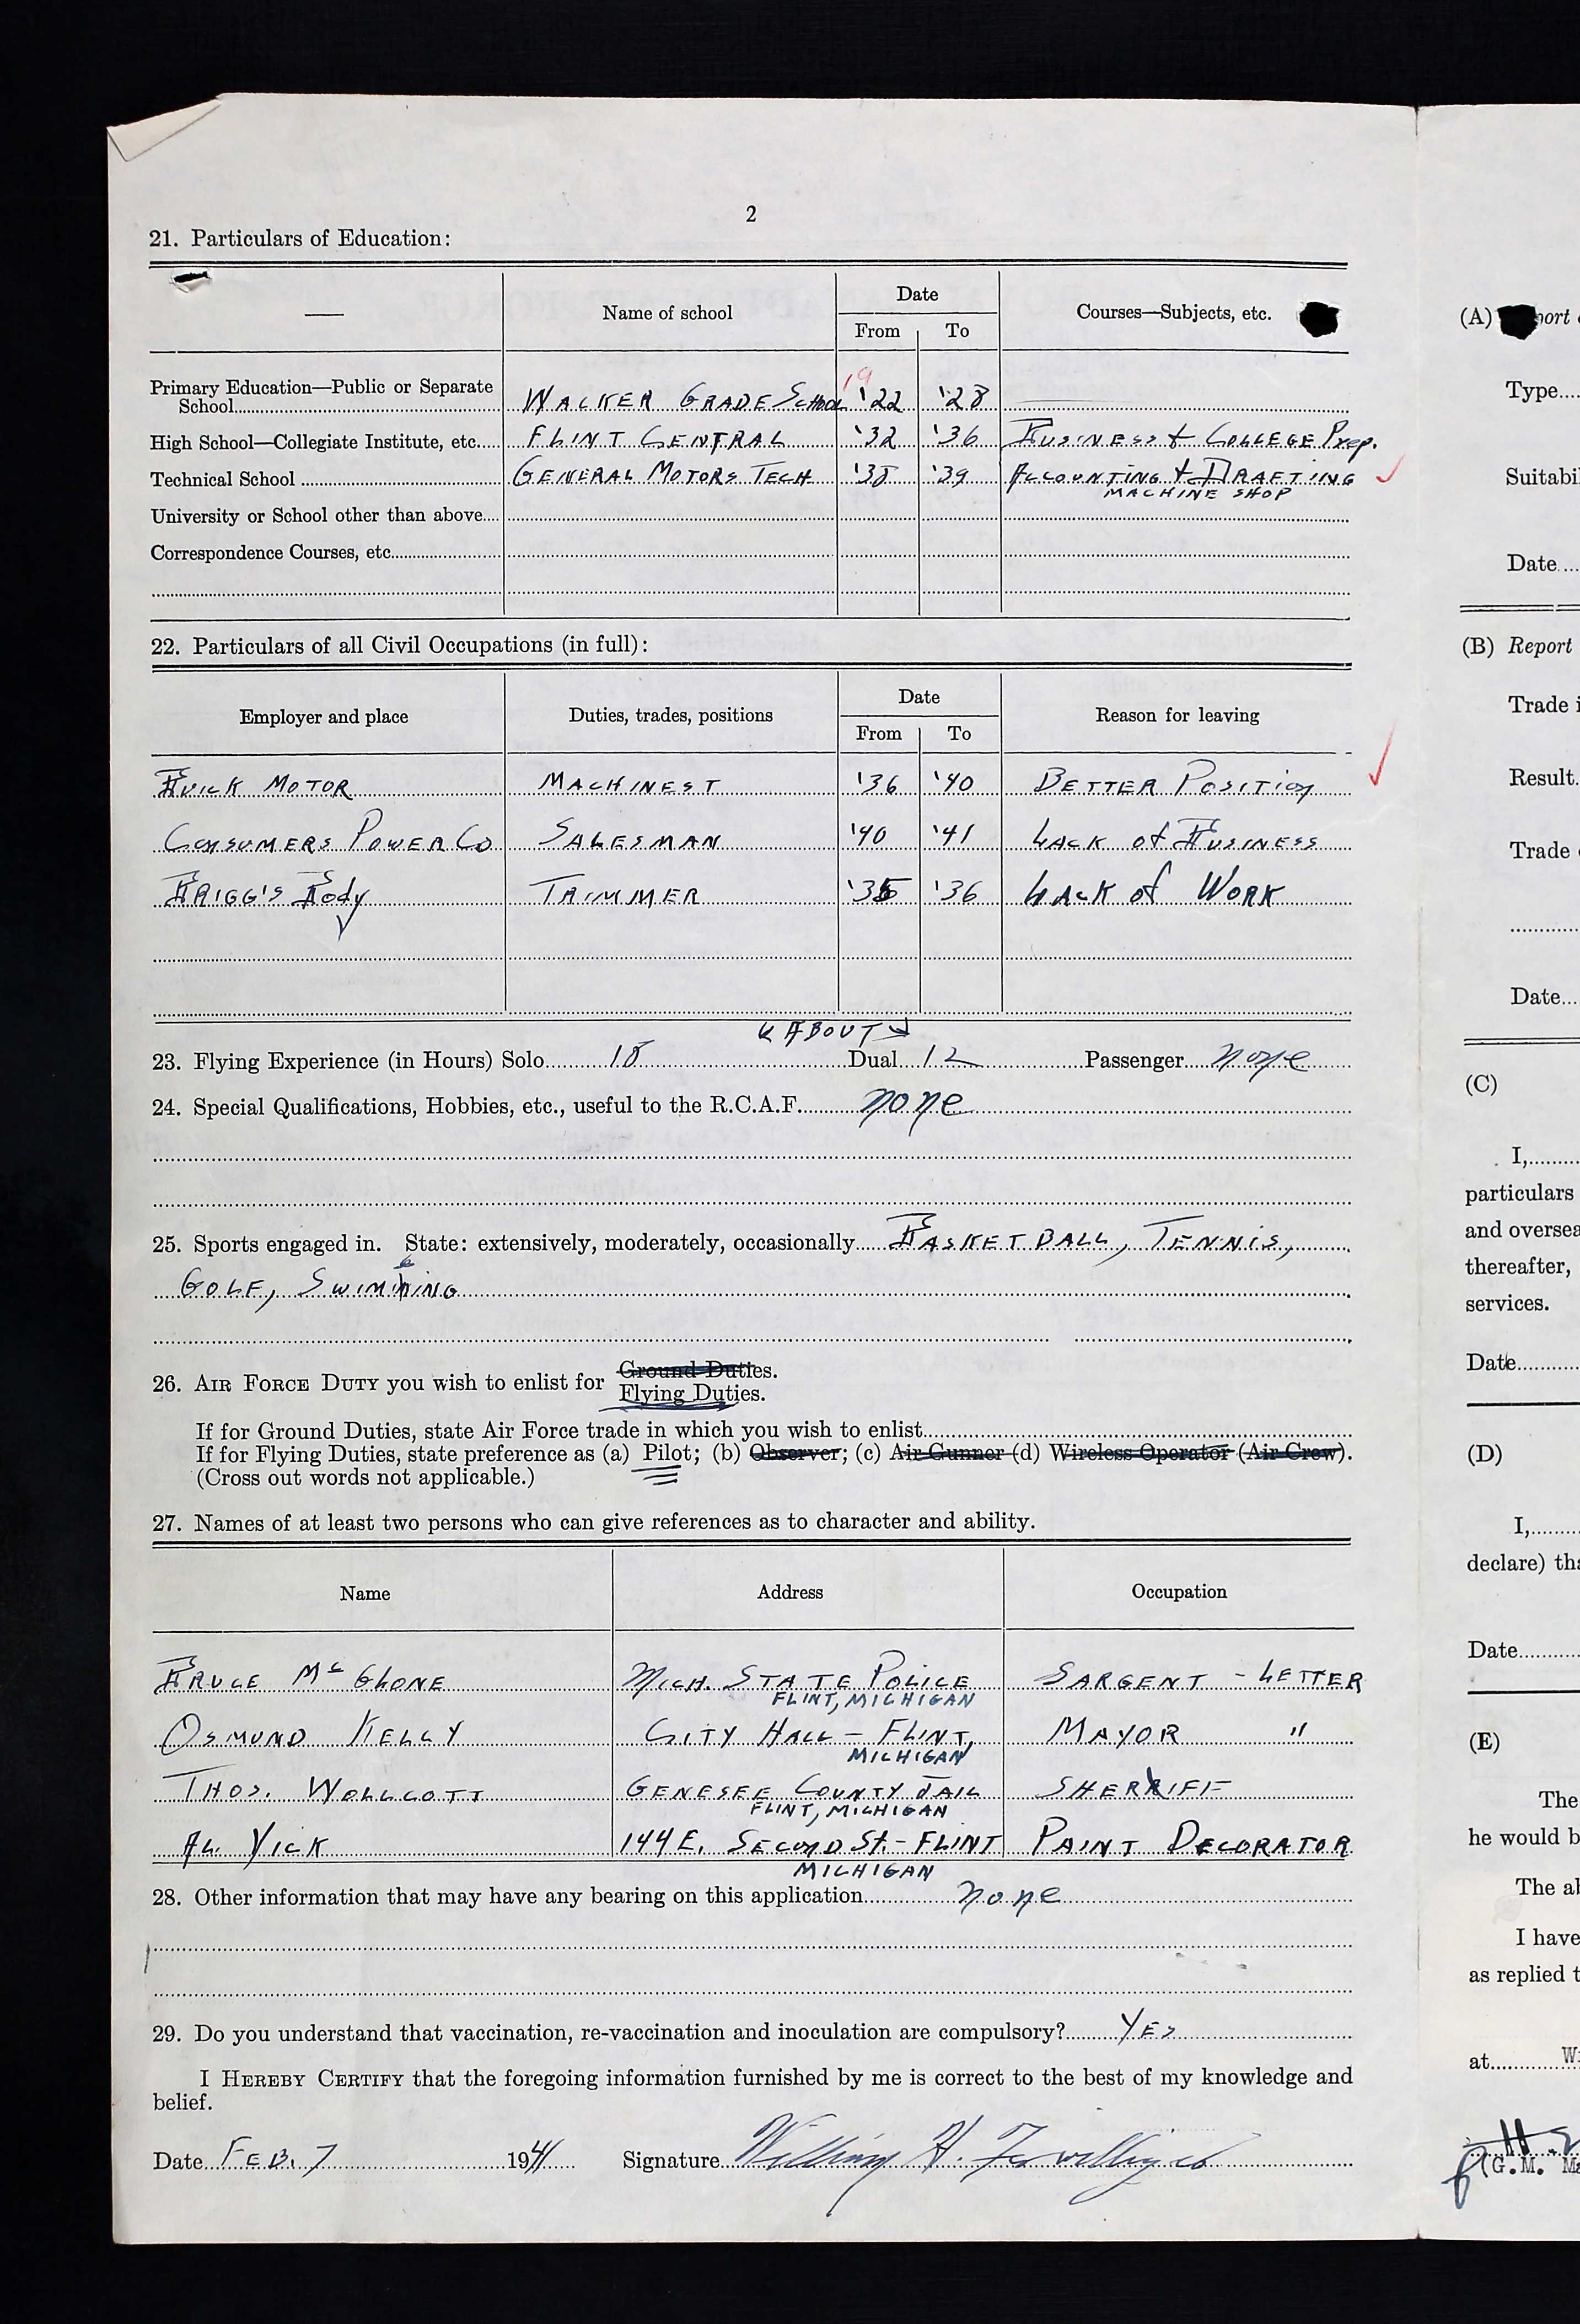 2
21. Particulars of Education:
— Name of school Date From To Courses—Subjects, etc.
Primary Education—Public or Separate
School WALKER GRADE SCHOOL 19 '22 '28
High School—Collegiate Institute, etc. FLINT CENTRAL '32 '36 BUSINESS & COLLEGE Prep.
Technical School GENERAL MOTORS TECH '38 '39 ACCOUNTING & DRAFTING
MACHINE SHOP
University or School other than above
Correspondence Courses, etc.
22. Particulars of all Civil Occupations (in full):
Employer and place Duties, trades, positions Date From To Reason for leaving
BUICK MOTOR MACHINEST '36 '40 BETTER POSITION
CONSUMERS POWER CO SALESMAN '40 '41 LACK of BUSINESS
BRIGG'S BODY TRIMMER '35 '36 LACK of WORK
ABOUT
23. Flying Experience (in Hours) Solo 18 Dual 12 Passenger none
24. Special Qualifications, Hobbies, etc., useful to the R.C.A.F. none
25. Sports engaged in. State: extensively, moderately, occasionally BASKETBALL, TENNIS,
GOLF, SWIMMING
26. AIR FORCE DUTY you wish to enlist for Ground Duties.
Flying Duties.
If for Ground Duties, state Air Force trade in which you wish to enlist
If for Flying Duties, state preference as (a) Pilot; (b) Observer; (c) Air Gunner (d) Wireless Operator (Air Crew).
(Cross out words not applicable.)
27. Names of at least two persons who can give references as to character and ability.
Name Address Occupation
BRUCE McGLONE MICH. STATE POLICE SARGENT - LETTER
FLINT, MICHIGAN
OSMUND KELLY CITY HALL - FLINT, MAYOR "
MICHIGAN
THOS. WOLLCOTT GENESEE COUNTY JAIL SHERRIFF
FLINT, MICHIGAN
AL. VICK 144 E. SECOND St. - FLINT PAINT DECORATOR
MICHIGAN
28. Other information that may have any bearing on this application none
29. Do you understand that vaccination, re-vaccination and inoculation are compulsory? YES
I HEREBY CERTIFY that the foregoing information furnished by me is correct to the best of my knowledge and
belief.
Date FEB. 7 1941 Signature William H.
(A) ort
Type
Suitabil
Date
(B) Report
Trade i
Result
Trade
Date
(C)
I,
particulars
and oversea
thereafter,
services.
Date
(D)
I,
declare) tha
Date
(E)
The
he would b
The ab
I have
as replied t
at Wi
(G.M. Ma